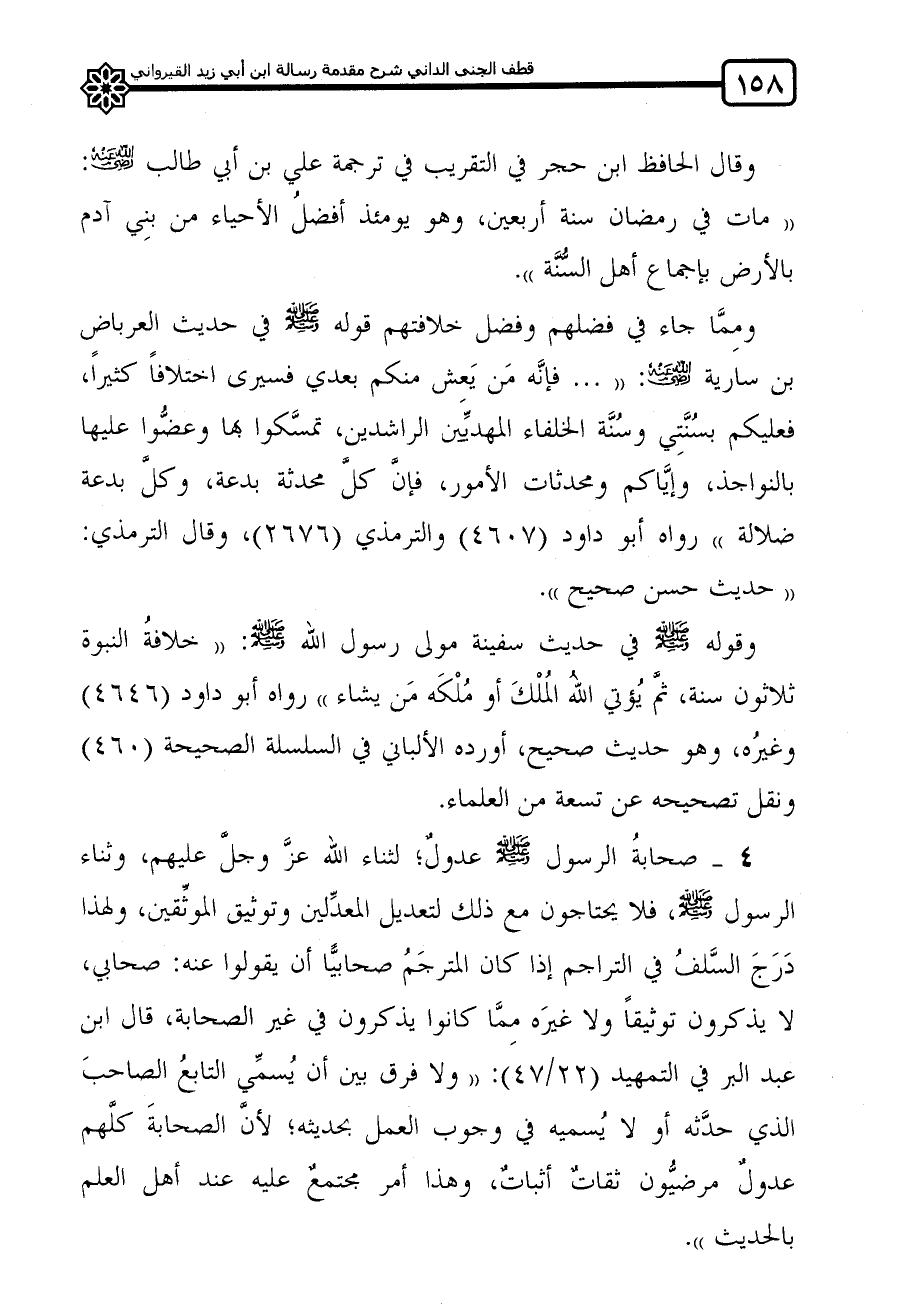 ١٥٨
قطف الجنى الداني شرح مقدمة رسالة ابن أبي زيد القيرواني
وقال الحافظ ابن حجر في التقريب في ترجمة علي بن أبي طالب رضي الله عنه:
« مات في رمضان سنة أربعين، وهو يومئذ أفضلُ الأحياء من بنِي آدم
بالأرض بإجماع أهل السُّنَّة ».
ومِمَّا جاء في فضلهم وفضل خلافتهم قوله ﷺ في حديث العرباض
بن سارية رضي الله عنه: « ... فإنَّه مَن يَعِش منكم بعدي فسيرى اختلافاً كثيراً،
فعليكم بسُنَّتِي وسُنَّة الخلفاء المهديِّين الراشدين، تمسَّكوا بها وعضُّوا عليها
بالنواجذ، وإيَّاكم ومحدثات الأمور، فإنَّ كلَّ محدثة بدعة، وكلَّ بدعة
ضلالة » رواه أبو داود (٤٦٠٧) والترمذي (٢٦٧٦)، وقال الترمذي:
« حديث حسن صحيح ».
وقوله ﷺ في حديث سفينة مولى رسول الله ﷺ: « خلافةُ النبوة
ثلاثون سنة، ثمَّ يُؤتي اللهُ المُلْكَ أو مُلْكَه مَن يشاء » رواه أبو داود (٤٦٤٦)
وغيرُه، وهو حديث صحيح، أورده الألباني في السلسلة الصحيحة (٤٦٠)
ونقل تصحيحه عن تسعة من العلماء.
٤ ـ صحابةُ الرسول ﷺ عدولٌ؛ لثناء الله عزَّ وجلَّ عليهم، وثناء
الرسول ﷺ، فلا يحتاجون مع ذلك لتعديل المعدِّلين وتوثيق الموثِّقين، ولهذا
دَرَجَ السَّلفُ في التراجم إذا كان المترجَمُ صحابيًّا أن يقولوا عنه: صحابي،
لا يذكرون توثيقاً ولا غيرَه مِمَّا كانوا يذكرون في غير الصحابة، قال ابن
عبد البر في التمهيد (٤٧/٢٢): « ولا فرق بين أن يُسمِّي التابعُ الصاحبَ
الذي حدَّثه أو لا يُسميه في وجوب العمل بحديثه؛ لأنَّ الصحابةَ كلَّهم
عدولٌ مرضيُّون ثقاتٌ أثباتٌ، وهذا أمر مجتمعٌ عليه عند أهل العلم
بالحديث ».